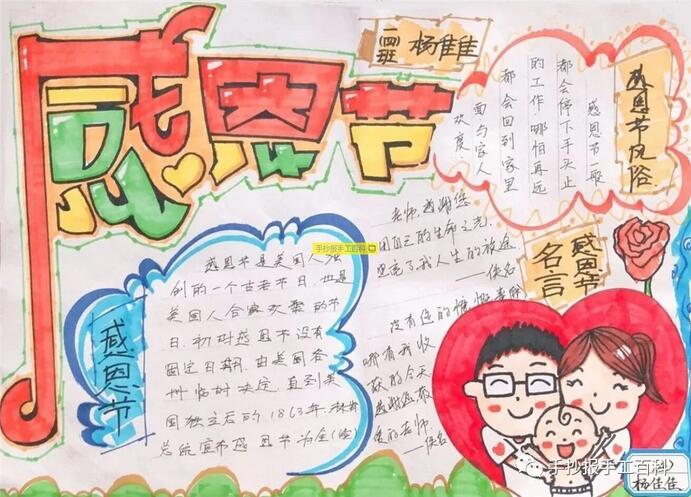 感恩节
一(四)班
杨佳佳
感恩节风俗
感恩节一般
都会停下手头上
的工作,哪怕再远
都会回到家里
面与家人
欢度
手抄报手工百科
感恩节
感恩节是美国人独
创的一个古老节日,也是
美国人合家欢聚的节
日,初时感恩节没有
固定日期,由美国各
州临时决定,直到美
国独立后的1863年,林肯
总统宣布感恩节为全(续)
感恩节
名言
老师,感谢您
用自己的生命之光,
照亮了我人生的旅途
——佚名
没有您的慷慨奉献
哪有我收
获的今天
感谢您敬
爱的老师
——佚名
手抄报手工百科
杨佳佳